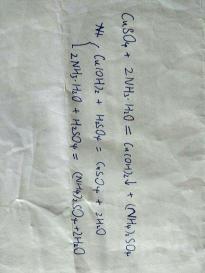 CuSO4 + 2NH3·H2O = Cu(OH)2↓ + (NH4)2SO4
Cu(OH)2 + H2SO4 = CuSO4 + 2H2O
2NH3·H2O + H2SO4 = (NH4)2SO4 + 2H2O